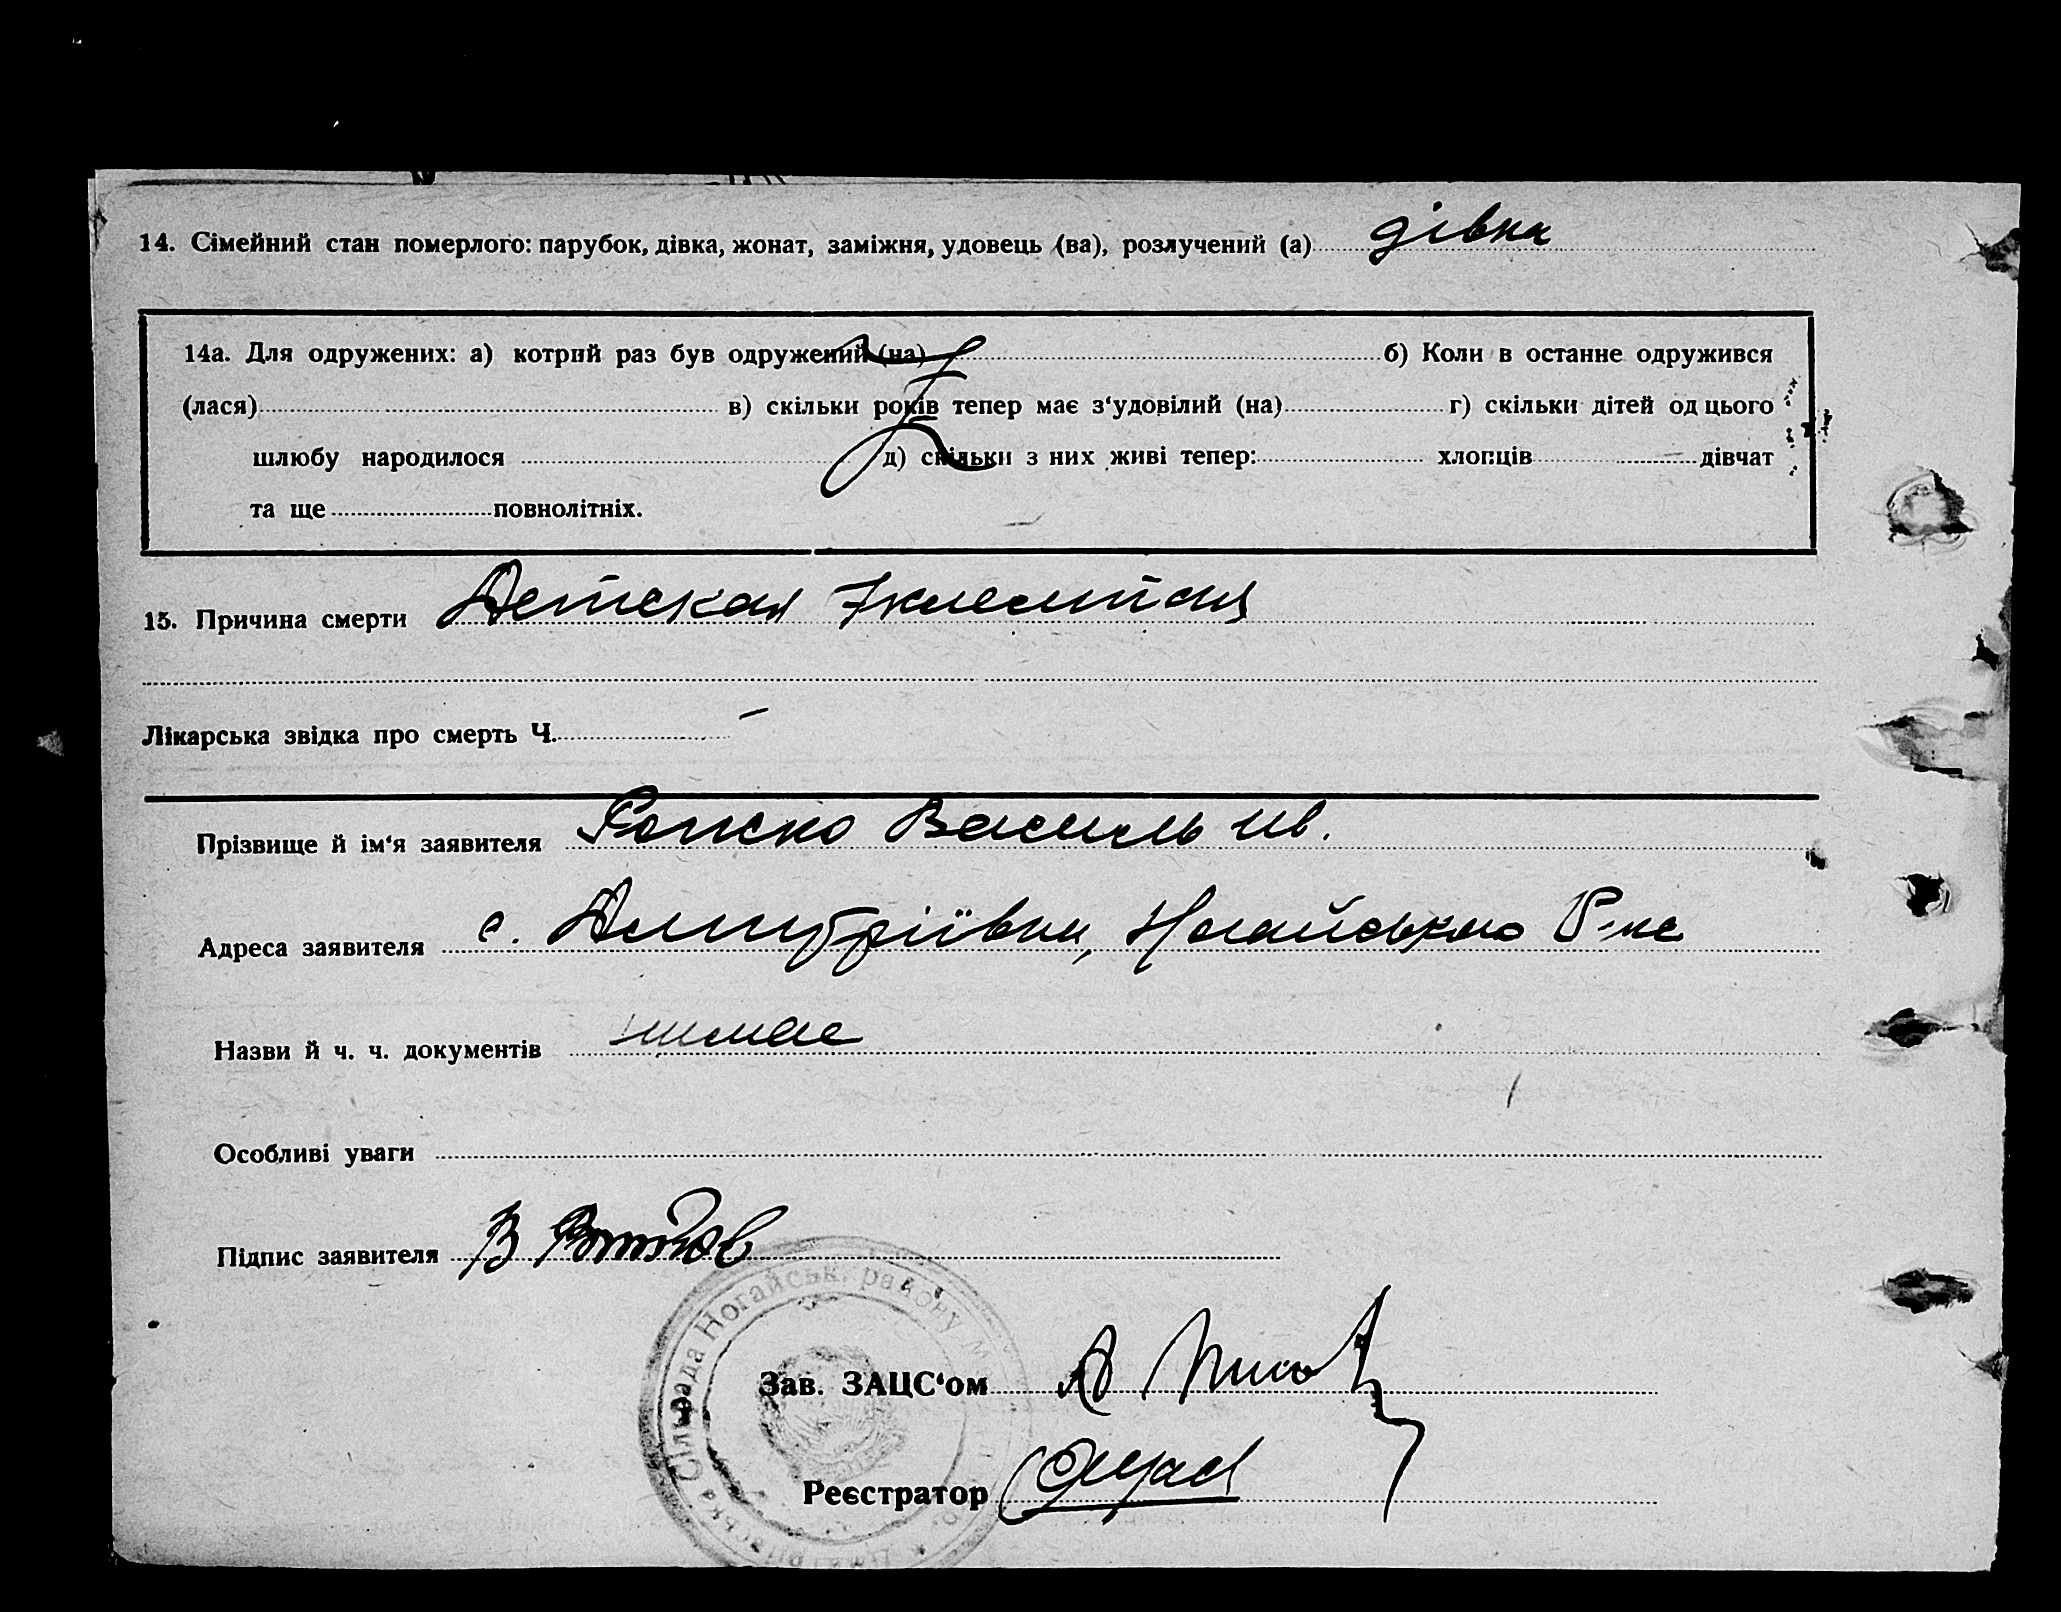 14. Сімейний стан померлого: парубок, дівка, жонат, заміжня, удовець (ва), розлучений (а) дівка
14а. Для одружених: а) котрий раз був одружений (на) б) Коли в останнє одружився
(лася) в) скільки років тепер має з‘удовілий (на) г) скільки дітей од цього
шлюбу народилося д) скільки з них живі тепер: хлопців дівчат
та ще повнолітніх.
15. Причина смерти Детская
Лікарська звідка про смерть Ч. –
Прізвище й ім‘я заявителя Василь Ив.
Адреса заявителя с. Дмитріївки, Ногайського Р-не
Назви й ч. ч. документів немає
Особливі уваги
Підпис заявителя В
Сільрада Ногайськ. району
Зав. ЗАЦС‘ом
Реєстратор